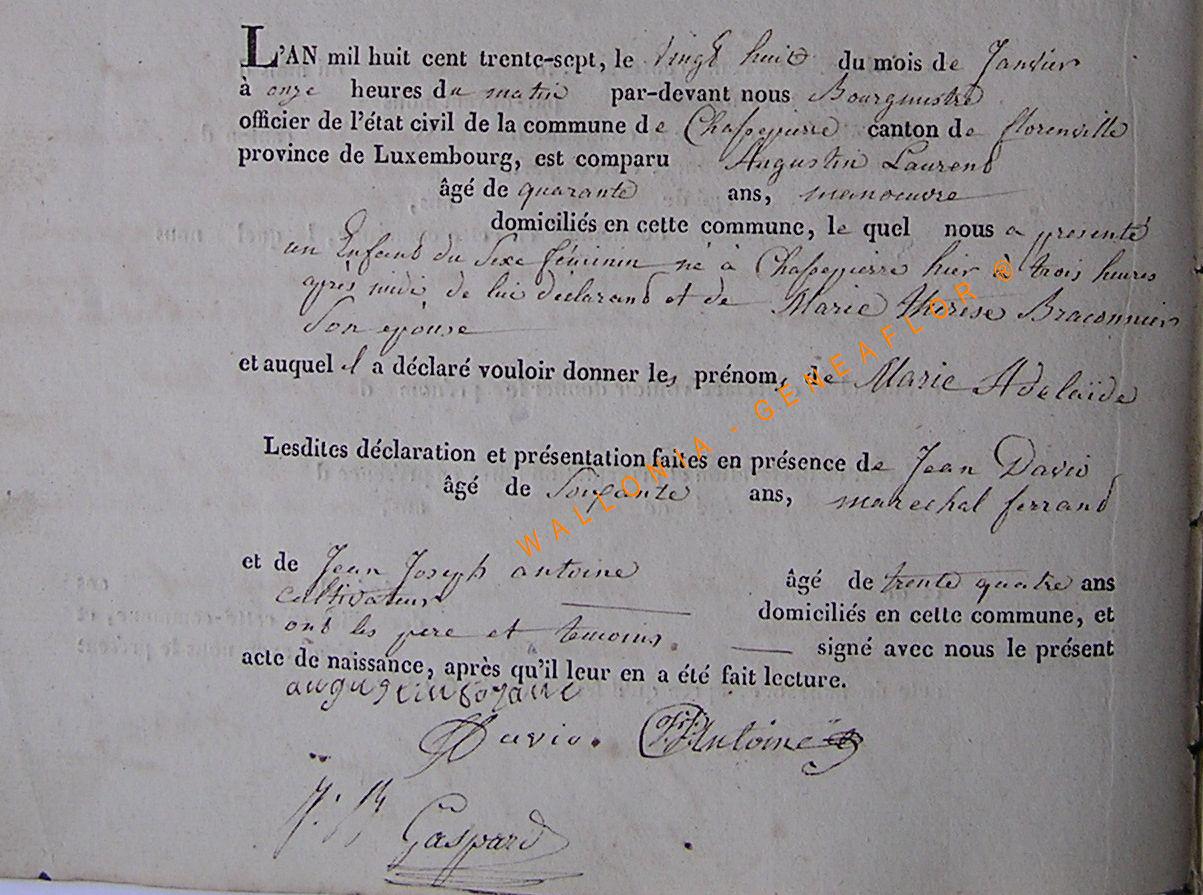 L'AN mil huit cent trente-sept, le vingt huit du mois de Janvier
à onze heures du matin par-devant nous Bourgmestre
officier de l'état civil de la commune de Chassepierre canton de florenville
province de Luxembourg, est comparu Augustin Laurent
âgé de quarante ans, manoeuvre
domiciliés en cette commune, le quel nous a présenté
un Enfant du Sexe féminin né à Chassepierre hier à trois heures
après midi, de lui déclarant et de Marie Thérèse Braconnier
Son épouse
et auquel il a déclaré vouloir donner les prénoms de Marie Adelaïde
Lesdites déclaration et présentation faites en présence de Jean David
âgé de Soixante ans, marechal ferrant
et de Jean Joseph antoine âgé de trente quatre ans
cultivateur domiciliés en cette commune, et
ont les pere et temoins. signé avec nous le présent
acte de naissance, après qu'il leur en a été fait lecture.
David. JJAntoine
Gaspard
WALLONIA - GENEAFLOR ®